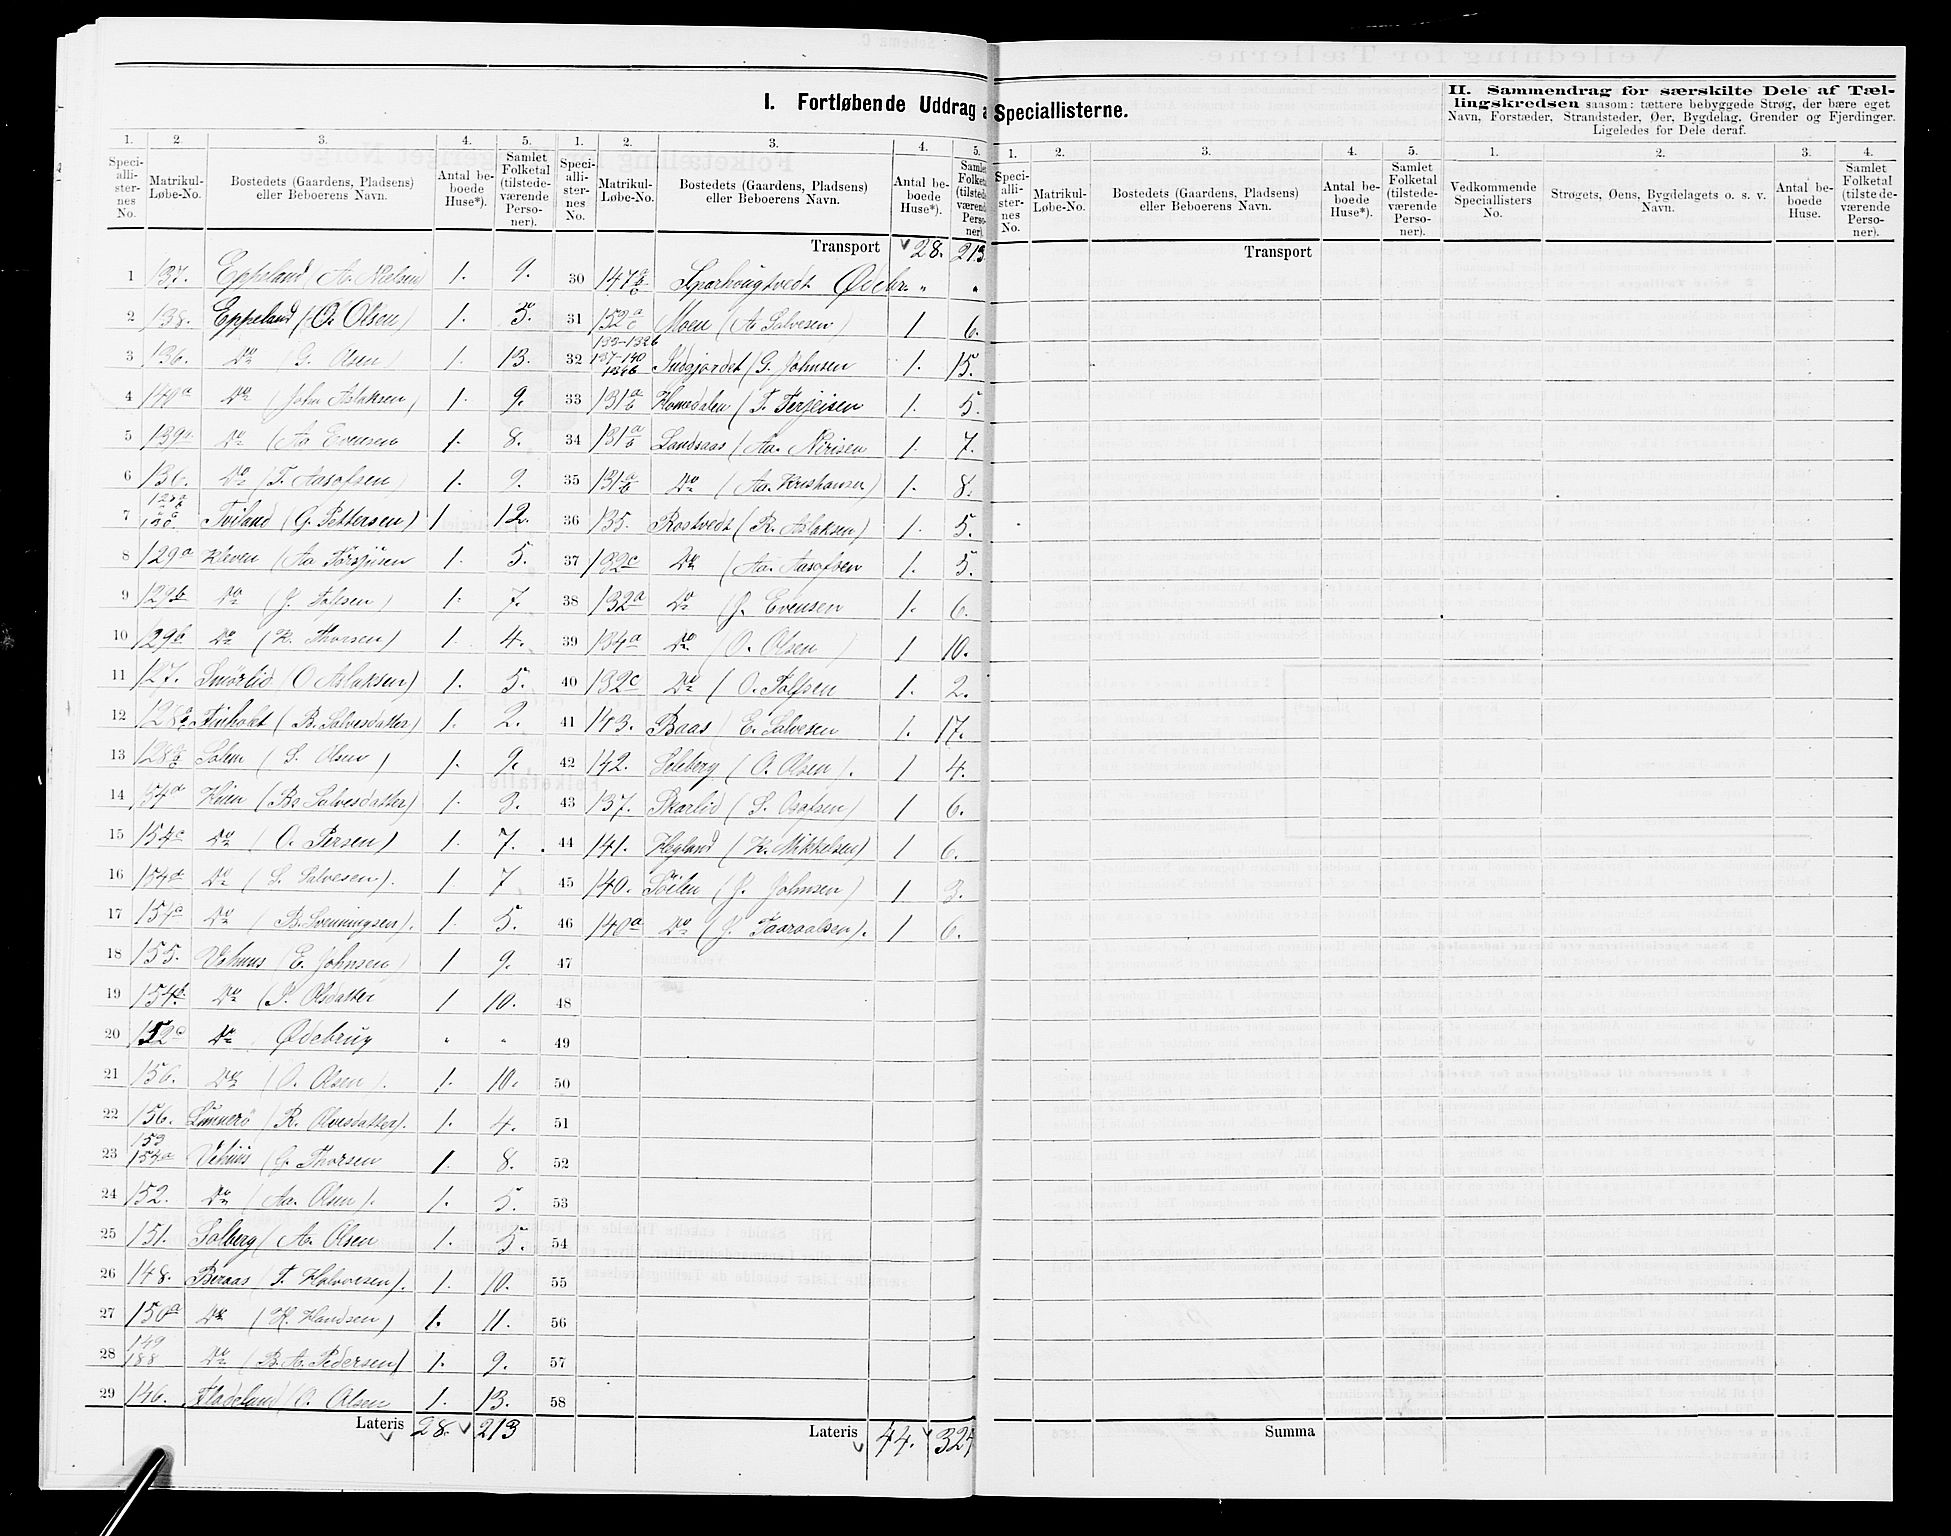 I. Fortløbende Uddrag a
1. 2. 3. 4. 5.
Speciallisternes No. Matrikul-Løbe-No. Bostedets (Gaardens, Pladsens) eller Beboerens Navn. Antal beboede Huse*). Samlet Folketal (tilstedeværende Personer).
1 137. Eppeland (A. Nielsen 1. 9.
2 138. Eppeland (O. Olsen) 1. 5.
3 136. Do (G. Olsen) 1. 13.
4 140a Do (John Aslaksen) 1. 9.
5 139a Do (Aa Evensen 1. 8.
6 136. Do (T. Aasofsen) 1. 9.
7 Tviland (G. Pettersen) 1 12.
8 129a Kleven (Aa 1. 5.
9 129b Do 1. 7.
10 129b Do (K. Thorsen) 1. 4.
11 127. Smörlid (O Aslaksen) 1. 5.
12 (B. Salvesdatter) 1. 2.
13 Solem (S. Olsen) 1. 9.
14 (Bs Salvesdatter) 1. 3.
15 154c Do (O. Persen) 1. 7.
16 154d Do (S. Salvesen). 1 7
17 154c Do (B. Svenningsen). 1. 5.
18 155. Vehuus (E. Johnsen) 1 9.
19 154b. Do (S. Olsdatter 1 10.
20 152c Do Ødebrug " "
21 156. Do (O. Olsen). 1. 10.
22 156. (R. Olvesdatter). 1. 4.
23 153 154a Vehuus (G. Thorsen 1. 8.
24 152. Do (Aa. Olsen). 1. 5.
25 151. Solberg (A. Olsen 1. 5.
26 148. Beraas (T. Halvorsen). 1. 10.
27 150a Do (K. Hansen) 1. 11.
28 149 188 Do (B. A. Pedersen) 1. 9.
29 146. Fladeland (O. Olsen 1. 13.
Lateris 28. 213
1. 2. 3. 4. 5.
Speciallisternes No. Matrikul-Løbe-No. Bostedets (Gaardens, Pladsens) eller Beboerens Navn. Antal beboede Huse*). Samlet Folketal (tilstedeværende Personer).
Transport 28. 213
30 147 Ødebr. " "
31 152 Moen (A. Salvesen) 1 6.
32 132-132b 137-140 (G. Johnsen 1. 15.
33 131a Homdalen (T. Terjeisen 1. 5.
34 131a Landsaas (Aa. 1. 7.
35 131a Do (Aa. Kristiansen) 1. 8.
36 135. Rostvedt (R. Aslaksen) 1. 5.
37 132c Do (Aa. Aasofsen 1. 5.
38 132a Do (J. Evensen 1. 6.
39 134a Do (O. Olsen) 1 10.
40 132c Do (O. Tolfsen 1. 2.
41 143. Baas (E. Salvesen 1. 17.
42 142. Soleberg (O. Olsen). 1 4.
43 137. Skarlid (S. 1 6.
44 141. Hegland (K. Mikkelsen) 1 6.
45 140. Töilen (J. Johnsen) 1 3.
46 140a Do (J. Taaraalsen). 1 6.
47
48
49
50
51
52
53
54
55
56
57
58
Lateris 44. 324
Speciallisterne.
1. 2. 3. 4. 5.
Speciallisternes No. Matrikul-Løbe-No. Bostedets (Gaardens, Pladsens) eller Beboerens Navn. Antal beboede Huse*). Samlet Folketal (tilstedeværende Personer).
Transport
Summa
II. Sammendrag for særskilte Dele af Tæl-
lingskredsen saasom: tættere bebyggede Strøg, der bære eget
Navn, Forstæder, Strandsteder, Øer, Bygdelag, Grender og Fjerdinger.
Ligeledes for Dele deraf.
1. 2. 3. 4.
Vedkommende Speciallisters No. Strøgets, Øens, Bygdelagets o. s. v. Navn. Antal beboede Huse. Samlet Folketal (tilstedeværende Personer).